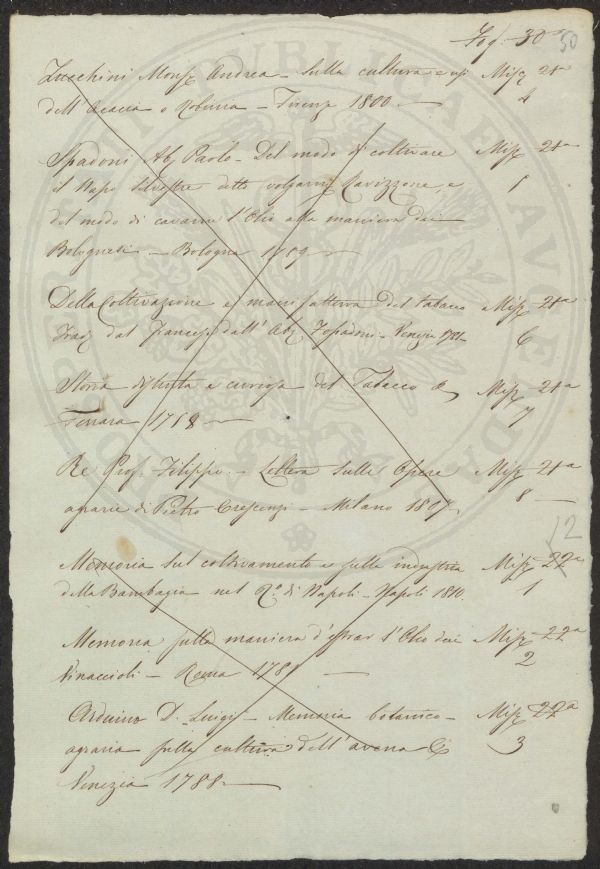 Fog. 30 30
Zucchini Monsr Andrea - Sulla cultura e usi Misc. 21a
dell'Acacia o Robinia - Firenze 1800. 4
Spadoni Ab. Paolo - Del modo di coltivare Misc. 21a
il Napo Silvestre detto volgarm. Ravizzone, e 5
del modo di cavarne l'Olio alla maniera dei
Bolognesi - Bologna 1789
Della Coltivazione e manifattura del tabacco Misc. 21a
Trad. dal francese dall'Ab. - Venezia 6
Storia distinta e curiosa del Tabacco &c. Misc. 21a
Ferrara 1758 7
Re Prof. Filippo - Lettera sulle Opere Misc. 21a
agrarie di Pietro Crescenzi - Milano 1807. 8
12
Memoria sul coltivamento e sulla industria Misc. 22a
della Bambagia nel R.o di Napoli - Napoli 1810. 1
Memoria sulla maniera d'estrar l'Olio dai Misc. 22a
Vinaccioli - Roma 1781 2
Arduino D. Luigi - Memoria botanico - Misc. 22a
agraria sulla cultura dell'avena &c. 3
Venezia 1788.